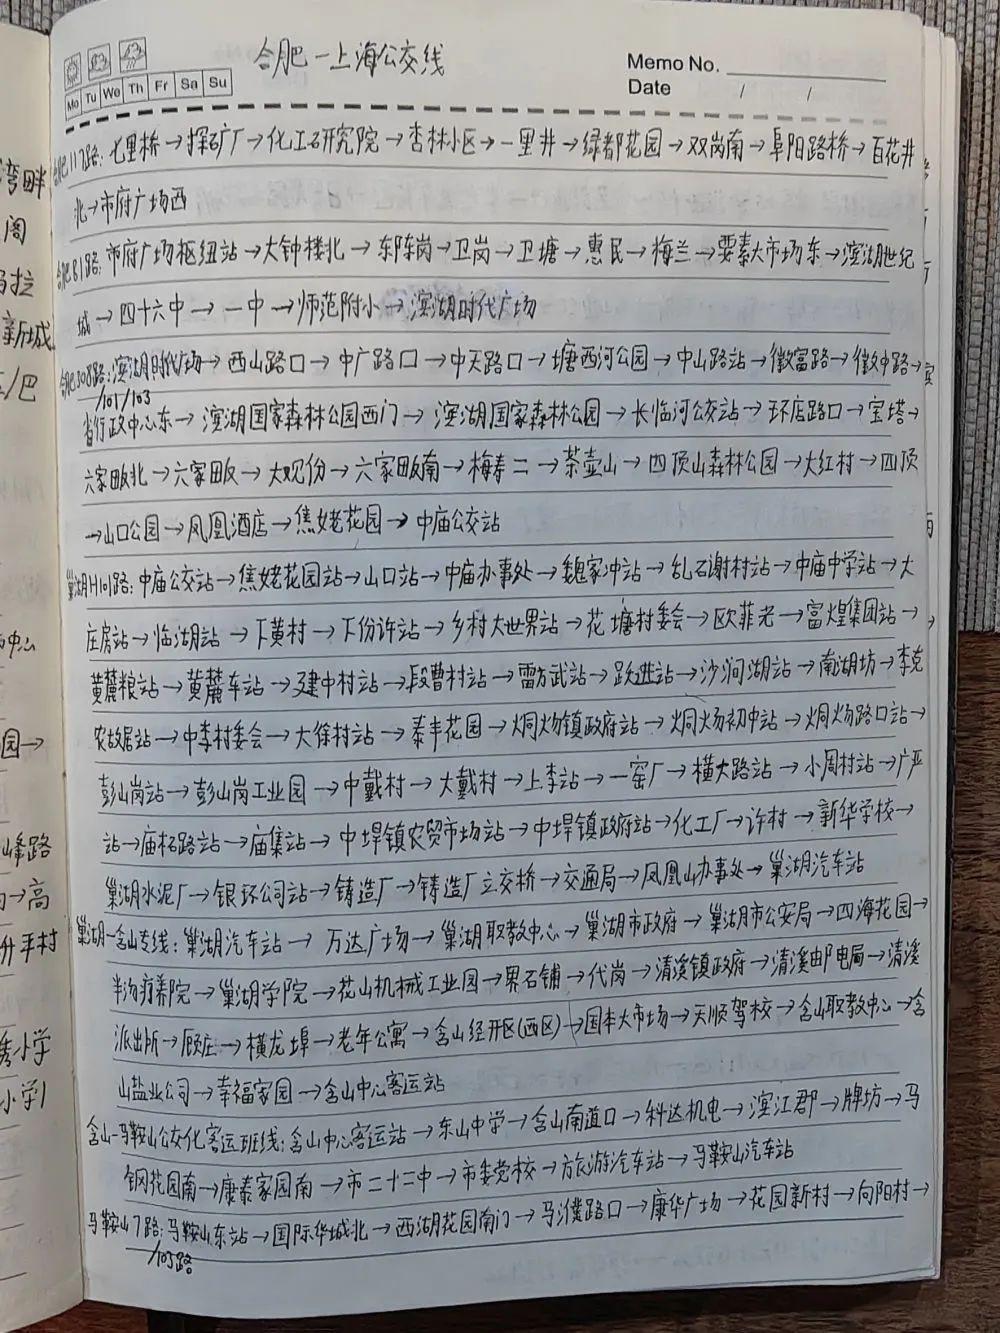 合肥—上海公交线
Memo No.
Date / /
Mo Tu We Th Fr Sa Su
合肥117路: 七里桥→探矿厂→化工研究院→杏林小区→一里井→绿都花园→双岗南→阜阳路桥→百花井
北→市府广场西
合肥81路: 市府广场枢纽站→大钟楼北→东陈岗→卫岗→卫塘→惠民→梅兰→要素大市场东→滨湖世纪
城→四十六中→一中→师范附小→滨湖时代广场
合肥308路: 滨湖时代广场→西山路口→中广路口→中天路口→塘西河公园→中山路站→徽富路→徽中路→
/101/103
省行政中心东→滨湖国家森林公园西门→滨湖国家森林公园→长临河公交站→环店路口→宝塔→
六家畈北→六家畈→大观份→六家畈南→梅寿二→茶壶山→四顶山森林公园→大红村→四顶
→山口公园→凤凰酒店→焦姥花园→中庙公交站
巢湖H101路: 中庙公交站→焦姥花园站→山口站→中庙办事处→魏家冲站→乱石谢村站→中庙中学站→大
庄房站→临湖站→下黄村→下份许站→乡村大世界站→花塘村委会→欧菲光→富煌集团站→
黄麓粮站→黄麓车站→建中村站→段曹村站→雷方武站→跃进站→沙涧湖站→南湖坊→李克
农故居站→中李村委会→大徐村站→泰丰花园→烔炀镇政府站→烔炀初中站→烔炀路口站→
彭山岗站→彭山岗工业园→中戴村→大戴村→上李站→一窑厂→横大路站→小周村站→广严
站→庙松路站→庙集站→中垾镇农贸市场站→中垾镇政府站→化工厂→许村→新华学校→
巢湖水泥厂→银环公司站→铸造厂→铸造厂立交桥→交通局→凤凰山办事处→巢湖汽车站
巢湖—含山专线: 巢湖汽车站→万达广场→巢湖职教中心→巢湖市政府→巢湖市公安局→四海花园→
半汤疗养院→巢湖学院→花山机械工业园→界石铺→代岗→清溪镇政府→清溪邮电局→清溪
派出所→顾庄→横龙埠→老年公寓→含山经开区(西区)→国本大市场→天顺驾校→含山职教中心→含
山盐业公司→幸福家园→含山中心客运站
含山—马鞍山公交化客运班线: 含山中心客运站→东山中学→含山南道口→科达机电→滨江郡→牌坊→马
钢花园南→康泰家园南→市二十二中→市委党校→方旅游汽车站→马鞍山汽车站
马鞍山7路: 马鞍山东站→国际华城北→西湖花园南门→马濮路口→康华广场→花园新村→向阳村→
/105路